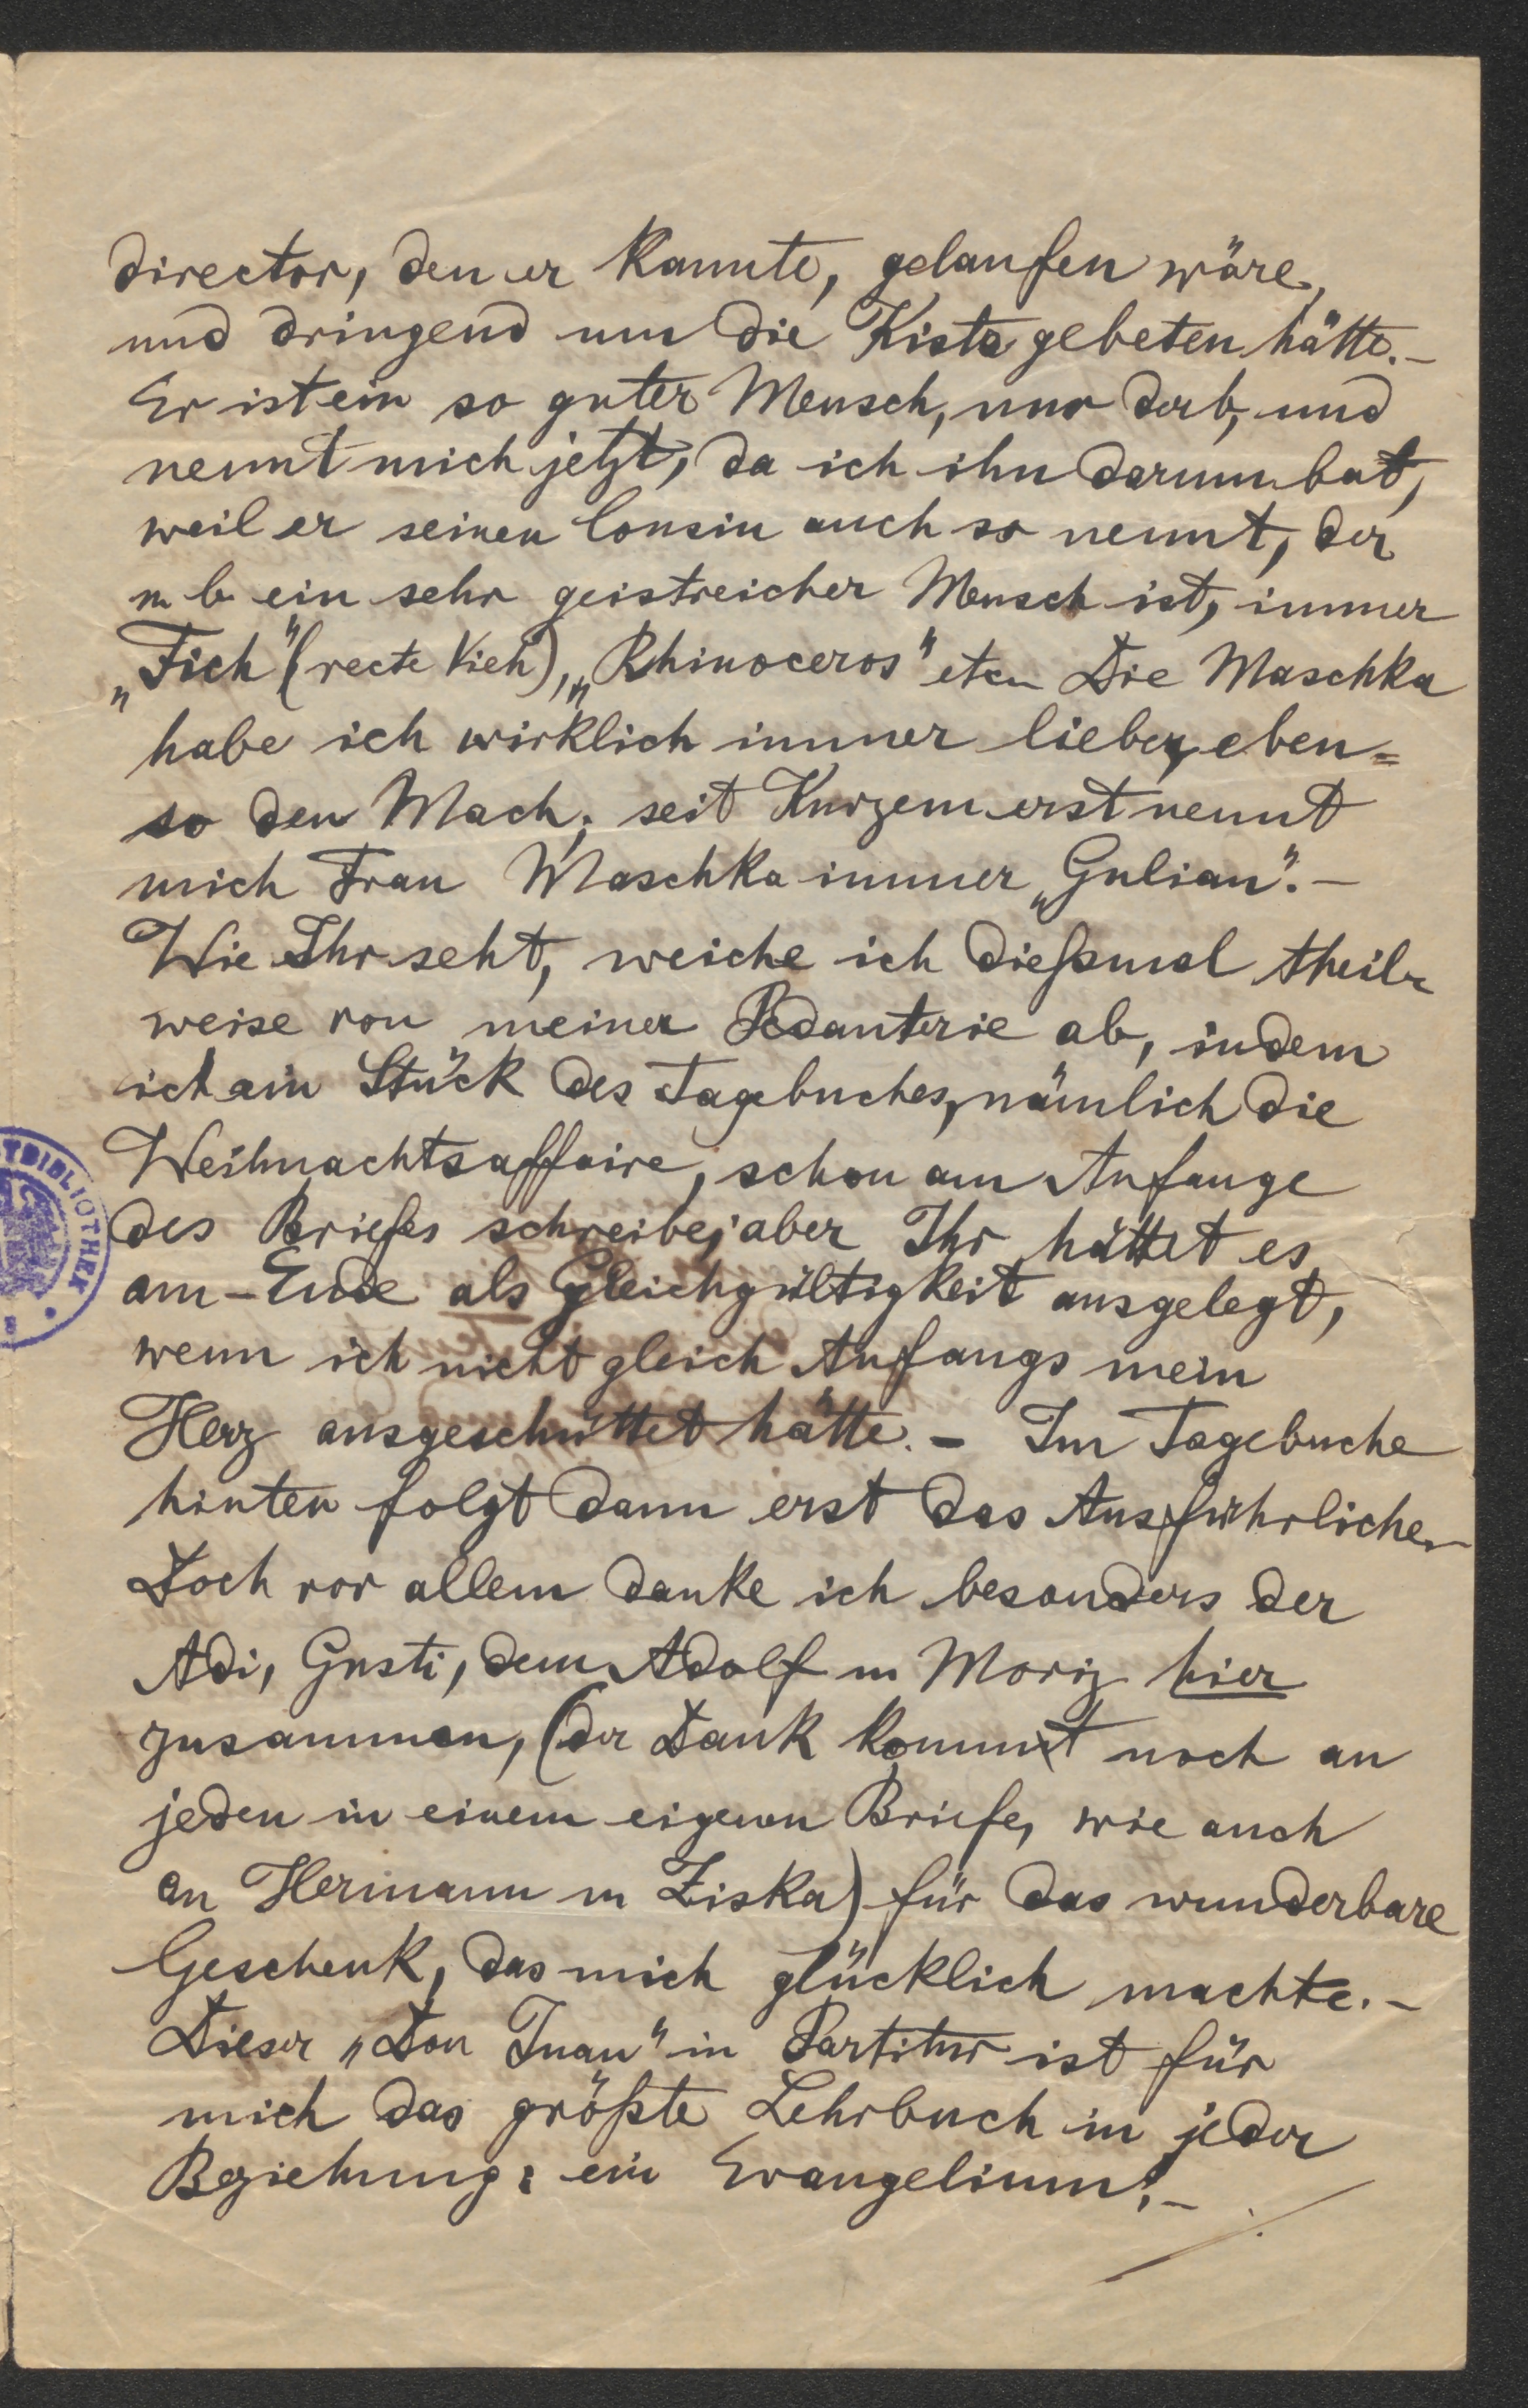 director, den er kannte, gelaufen wäre,
und dringend um die Kiste gebeten hätte.–
Er ist ein so guter Mensch, nur derb, und
nennt mich jetzt, da ich ihn darum bat,
weil er seinen Cousin auch so nennt, der
n b ein sehr geistreicher Mensch ist, immer
„Fich“ (recte Vieh), „Rhinoceros“ etc. Die Maschka
habe ich wirklich immer lieber, eben=
so den Mach; seit Kurzem erst nennt
mich Frau Maschka immer „Gulian“.–
Wie Ihr seht, weiche ich dießmal theil-
weise von meiner Pedanterie ab, indem
ich ein Stück des Tagebuches, nämlich die
Weihnachtsaffaire, schon am Anfange
des Briefes schreibe; aber Ihr hättet es
am Ende als Gleichgültigkeit ausgelegt,
wenn ich nicht gleich Anfangs mein
Herz ausgeschüttet hätte. – Im Tagebuche
hinten folgt dann erst das Ausführliche.
Doch vor allem danke ich besonders der
Adi, Gusti, dem Adolf u Moriz hier
zusammen, (der Dank kommt noch an
jeden in einem eigenen Briefe, wie auch
an Hermann u Ziska) für das wunderbare
Geschenk, das mich glücklich machte.–
Dieser „Don Juan“ in Partitur ist für
mich das größte Lehrbuch in jeder
Beziehung: ein Evangelium!–
TBIBLIOTHEK